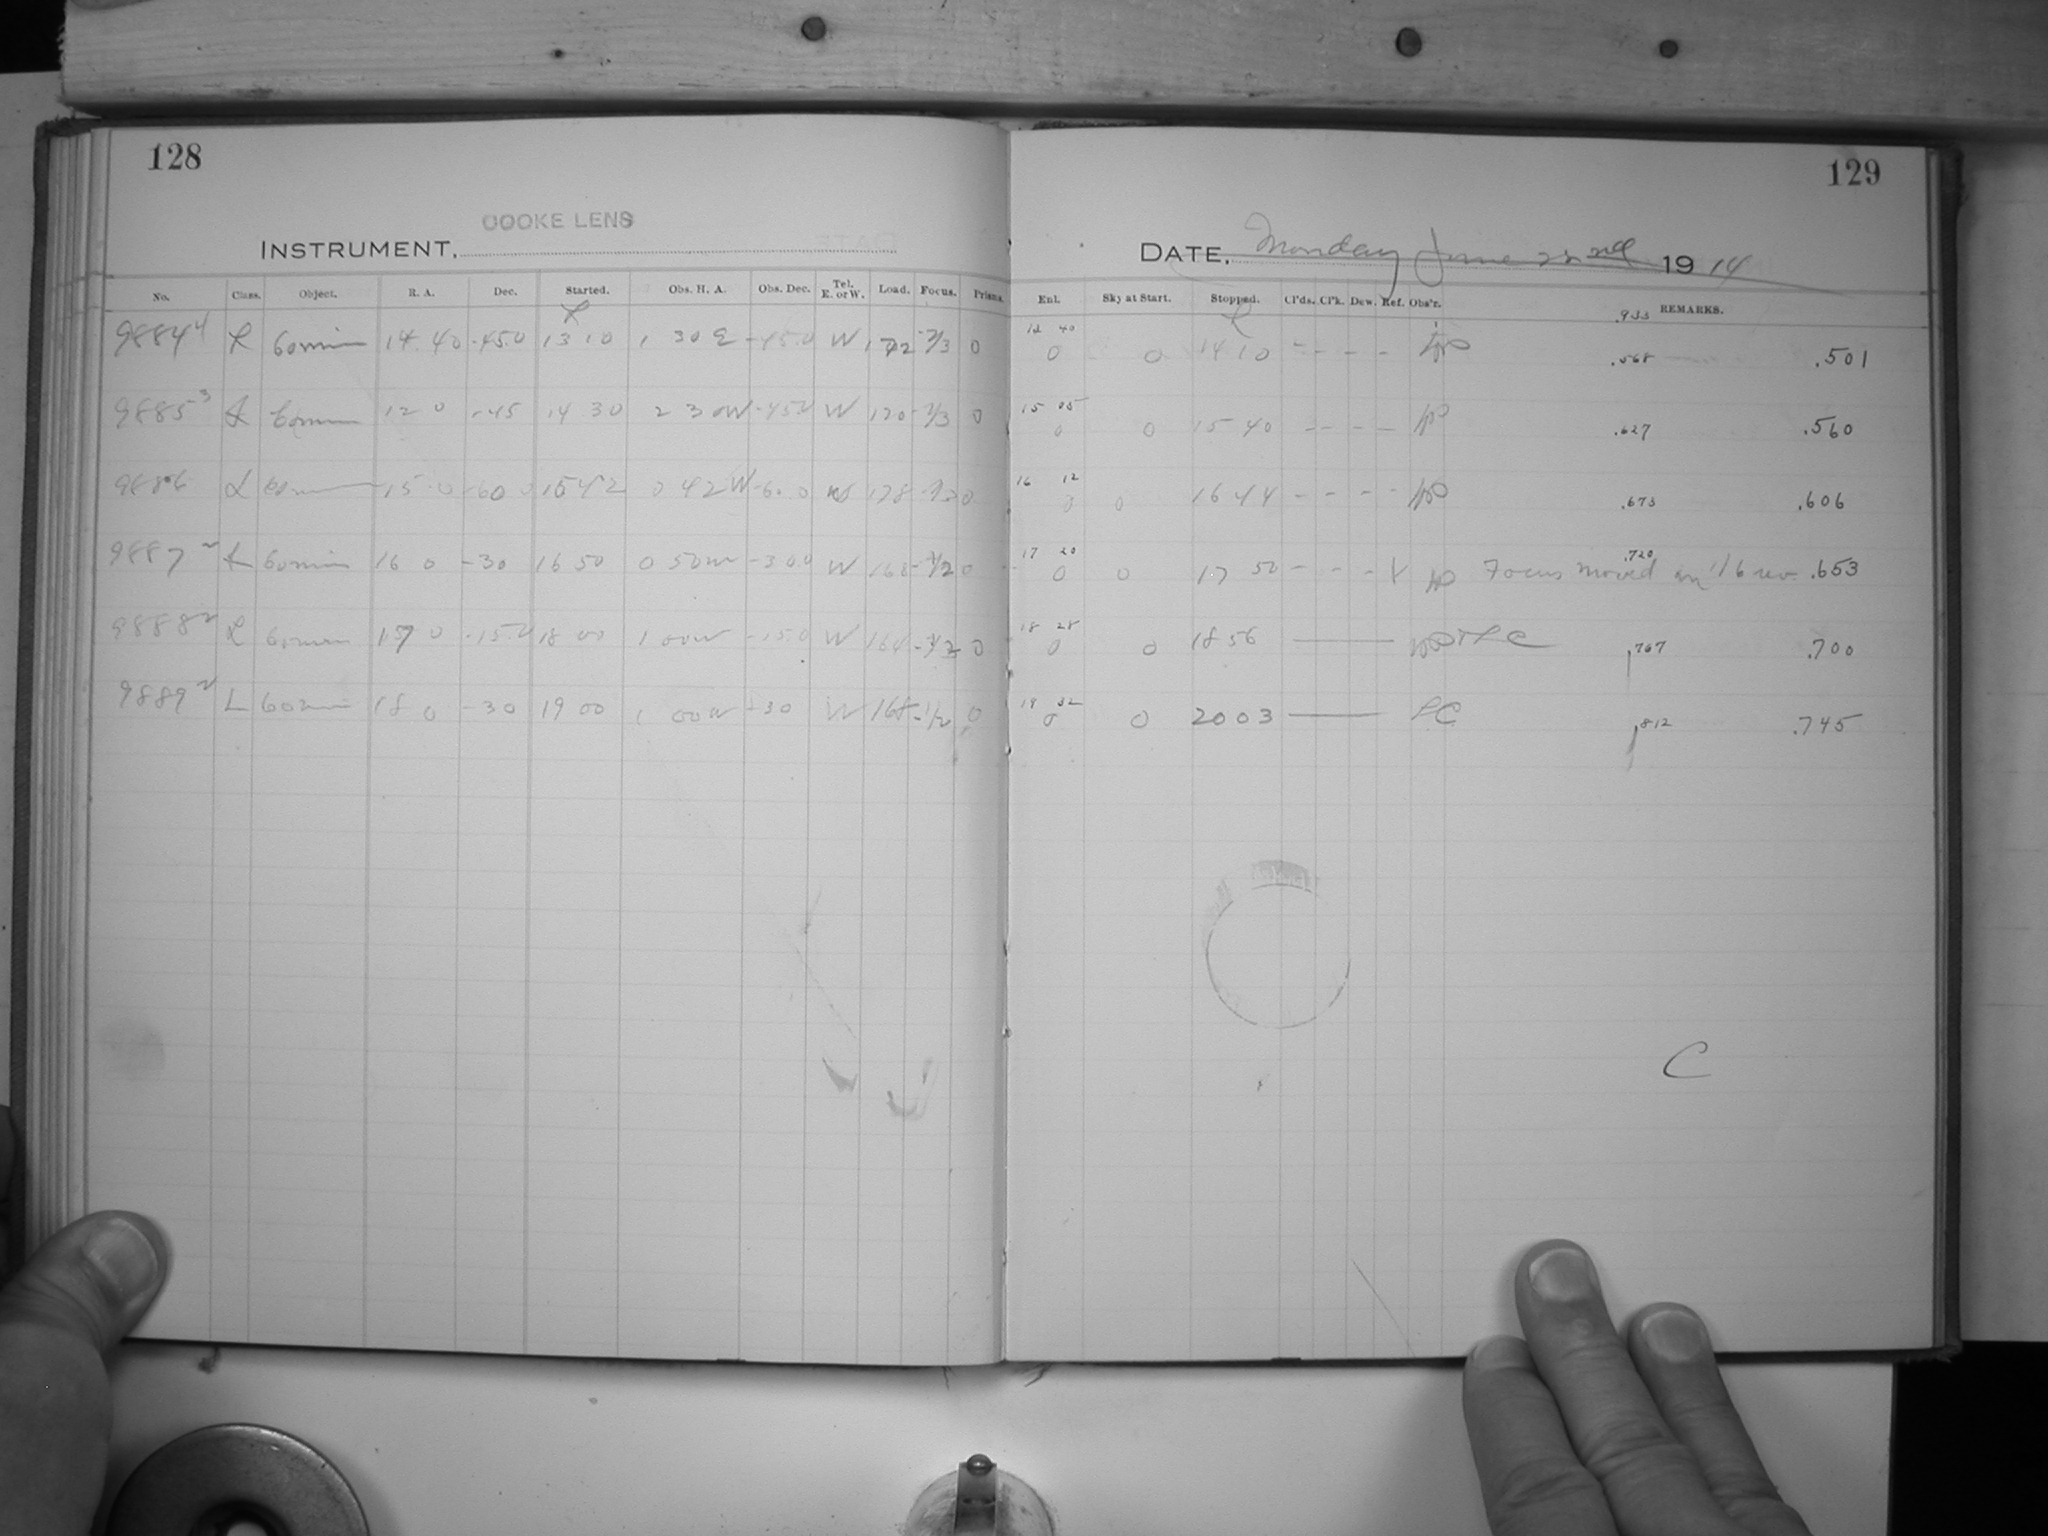 128
COOKE LENS
INSTRUMENT,
No. Class. Object. R. A. Dec. Started. Obs. H. A. Obs. Dec. Tel. E. or W. Load. Focus. Prisms.
9884 4 L 60min 14 40 -45.0 13 10 1 30 E -45.0 W 172 0
9885 3 L 60min 12 0 -45 14 30 2 30W -45.0 W 170 0
9886 L 60min 15 0 -60 0 15 42 0 42W -60.0 W 178 0
9887 2 L 60min 16 0 -30 16 50 0 50W -30.0 W 168 -1/2 0
9888 2 L 60min 17 0 -15.0 18 00 1 00W -15.0 W 164 -1/2 0
9889 2 L 60min 18 0 -30 19 00 1 00W -30 W 168 -1/2 0
129
DATE, Monday June 22nd 1914
Enl. Sky at Start. Stopped. Cl'ds. Cl'k. Dew. Ref. Obs'r. REMARKS.
.933
12 40
0 0 14 10 - - - - .568 .501
15 05
0 0 15 40 - - - - .627 .560
16 12
0 0 16 44 - - - - .673 .606
17 20 .720
0 0 17 50 - - - Focus moved in 1/6 rev. .653
18 28
0 0 18 56 .767 .700
19 32
0 0 20 03 LC .812 .745
C